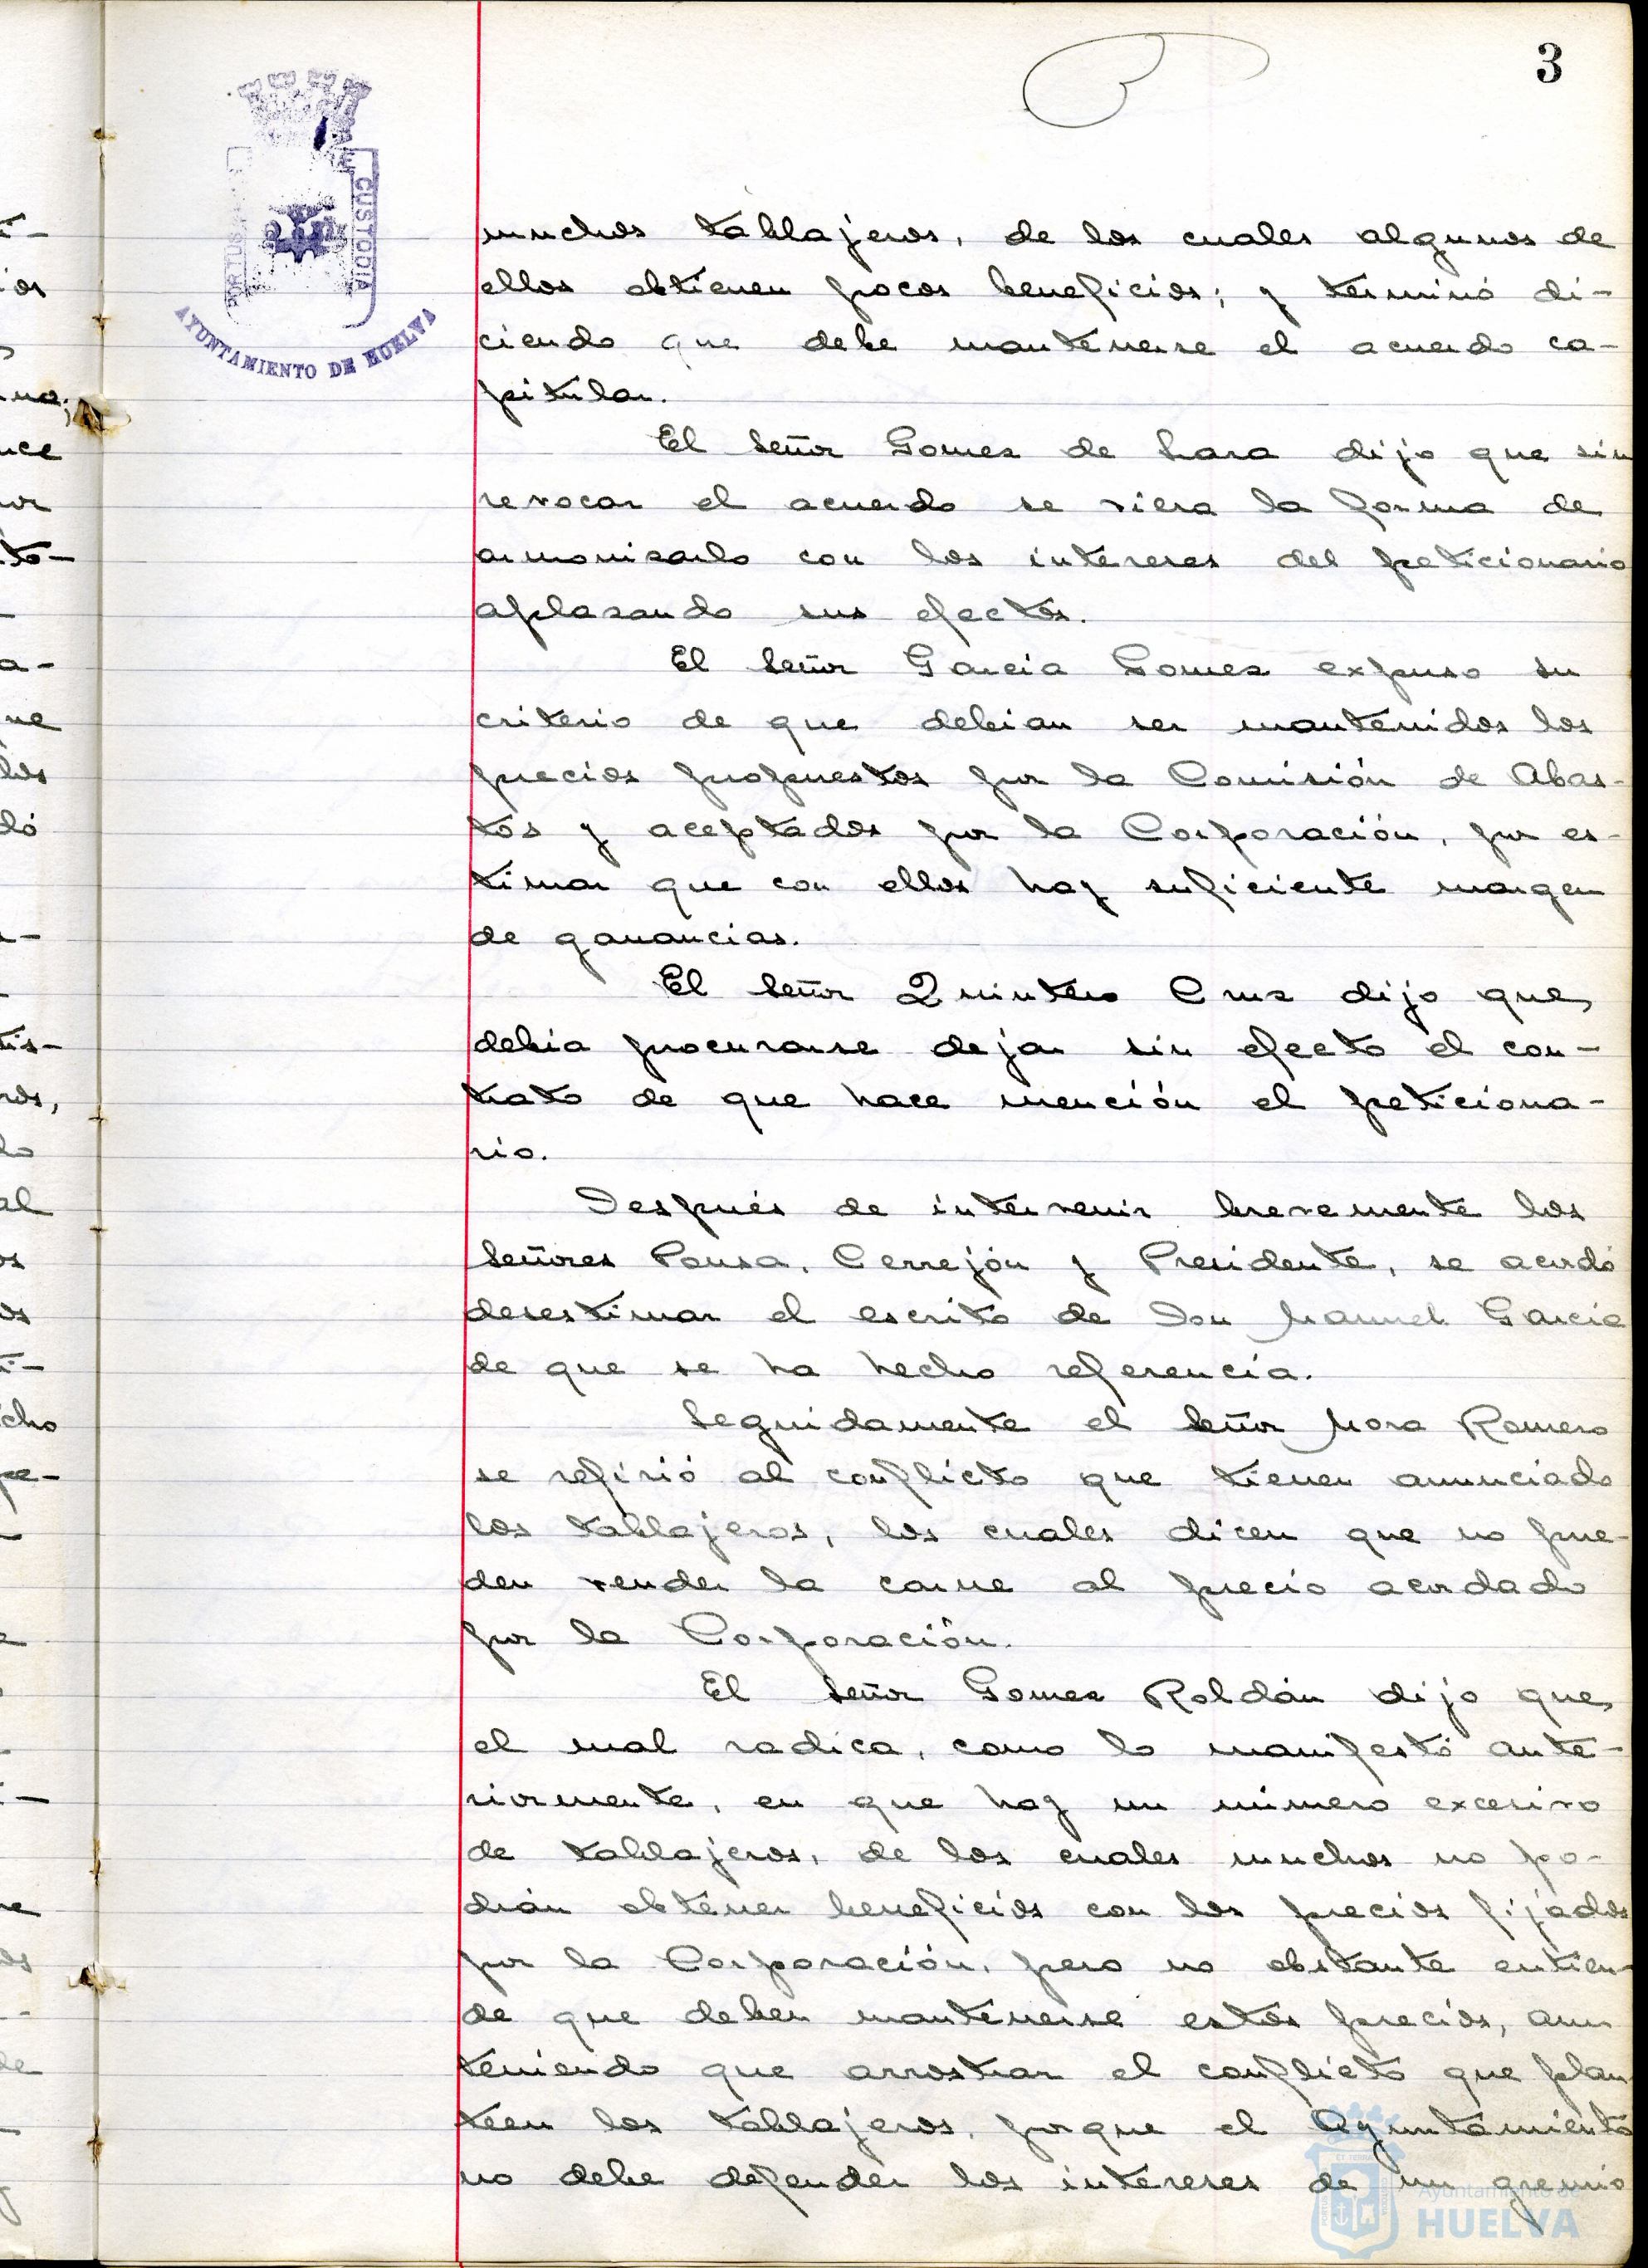 3
3
PORTUS
CUSTODIA
AYUNTAMIENTO DE HUELVA
muchos tablajeros, de los cuales algunos de
ellos obtienen pocos beneficios; y terminó di-
ciendo que debe mantenerse el acuerdo ca-
pitular.
El Señor Gomez de Lara dijo que sin
revocar el acuerdo se viera la forma de
armonizarlo con los intereses del peticionario
aplazando sus efectos.
El Señor Garcia Gomez expuso su
criterio de que debian ser mantenidos los
precios propuestos por la Comisión de Abas-
tos y aceptados por la Corporación, por es-
timar que con ellos hay suficiente margen
de ganancias.
El Señor Quintero Cruz dijo que,
debia procurarse dejar sin efecto el con-
trato de que hace mención el peticiona-
rio.
Después de intervenir brevemente los
Señores Ponsa, Cerrejón y Presidente, se acordó
desestimar el escrito de Don Manuel Garcia
de que se ha hecho referencia.
Seguidamente el Señor Mora Romero
se refirió al conflicto que tienen anunciado
los tablajeros, los cuales dicen que no pue-
den vender la carne al precio acordado
por la Corporación.
El Señor Gomez Roldán dijo que,
el mal radica, como lo manifestó ante-
riormente, en que hay un número excesivo
de tablajeros, de los cuales muchos no po-
drán obtener beneficios con los precios fijados
por la Corporación, pero no obstante entien-
de que deben mantenerse estos precios, aun
teniendo que arrostrar el conflicto que plan-
teen los tablajeros, porque el Ayuntamiento
no debe defender los intereses de un gremio
Ayuntamiento de
HUELVA